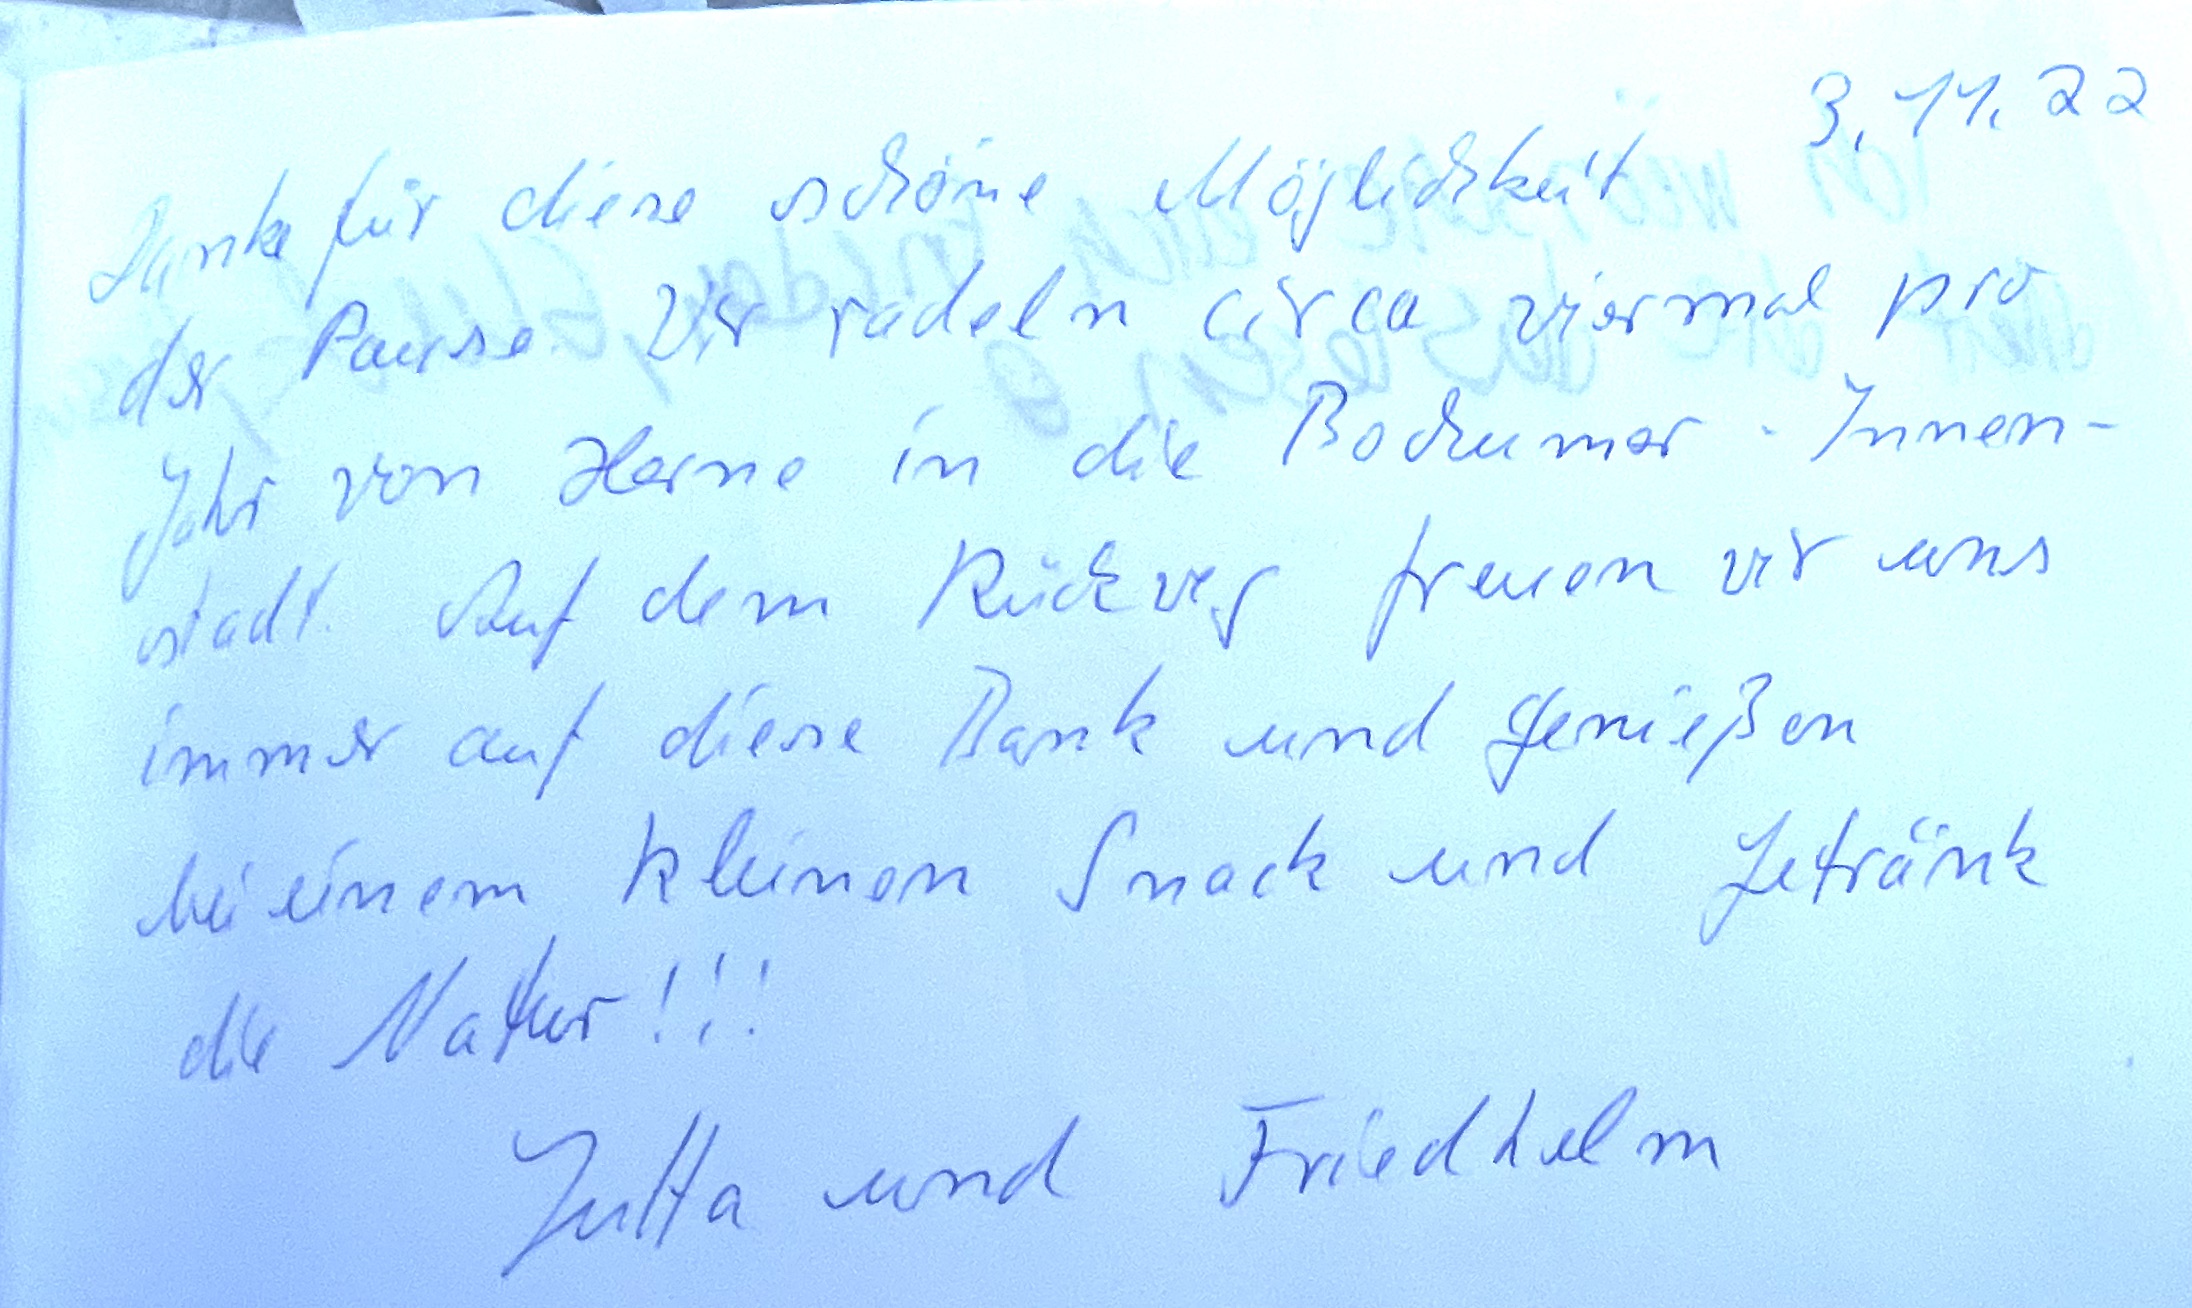 3.11.22
Danke für diese schöne Möglichkeit
der Pause. Wir radeln circa viermal pro
Jahr von Herne in die Bochumer-Innen-
stadt. Auf dem Rückweg freuen wir uns
immer auf diese Bank und genießen
bei einem kleinen Snack und Getränk
die Natur!!!
Jutta und Friedhelm